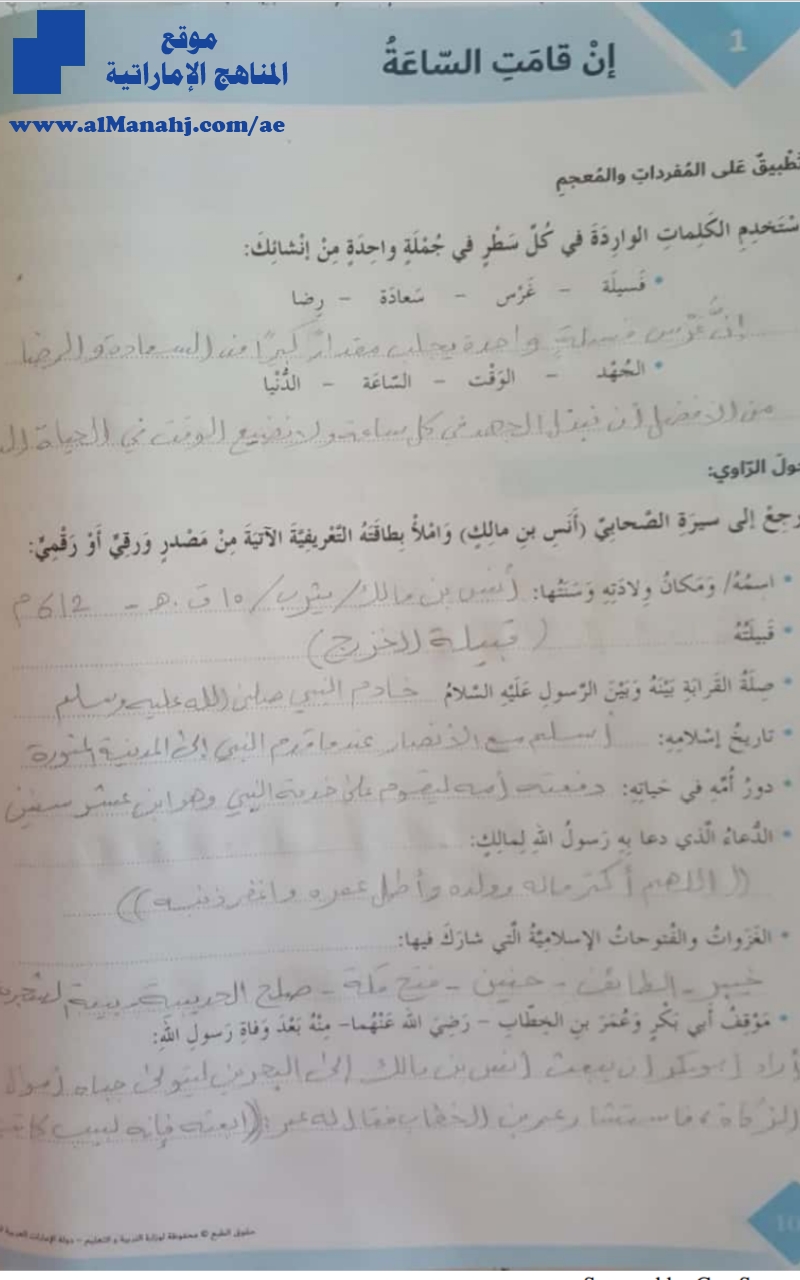 موقع
المناهج الإماراتية
www.alManahj.com/ae
1
إنْ قامَتِ السّاعَةُ
تَطْبيقٌ عَلى المُفرداتِ والمُعجمِ
اسْتَخدِمِ الكَلِماتِ الوارِدَةَ في كُلِّ سَطْرٍ في جُمْلَةٍ واحِدَةٍ مِنْ إنْشائِكَ:
• فَسيلَة – غَرْس – سَعادَة – رِضا
إنَّ غَرْس فسيلةٍ واحدة يجلب مقدارً كبيرًا من السعادة والرضا
• الجُهْد – الوَقْت – السّاعَة – الدُّنْيا
من الأفضل أن نبذل الجهد في كل ساعة ولا نضيع الوقت في الحياة
حولَ الرّاوي:
ارجِعْ إلى سيرَةِ الصّحابِيِّ (أنَسِ بنِ مالِكٍ) وَامْلأْ بِطاقَتَهُ التّعْريفِيَّةَ الآتيَةَ مِنْ مَصْدرٍ وَرقِيٍّ أوْ رَقْمِيٍّ:
• اسِمُهُ/ وَمَكانُ وِلادَتِهِ وَسَنَتُها: أنس بن مالك/ يثرب/ ١٠ ق.هـ - 612 م
• قَبيلَتُهُ (قبيلة الخزرج)
• صِلَةُ القَرابَةِ بَيْنَهُ وَبَيْنَ الرّسولِ عَلَيْهِ السّلامُ خادم النبي صلى الله عليه وسلم
• تاريخُ إسْلامِهِ: أسلم مع الأنصار عندما قدم النبي إلى المدينة المنورة
• دورُ أُمِّهِ في حَياتِهِ: دفعته أمه ليقوم على خدمة النبي وهو ابن عشر سنين
• الدُّعاءُ الّذي دعا بِهِ رَسولُ اللهِ لِمالِكٍ:
((اللهم أكثر ماله وولده وأطل عمره واغفر ذنبه))
• الغَزَواتُ والفُتوحاتُ الإسلامِيَّةُ الّتي شارَكَ فيها:
خيبر - الطائف - حنين - فتح مكة - صلح الحديبية
• مَوْقِفُ أبي بَكْرٍ وَعُمَرَ بنِ الخطّابِ – رَضِيَ الله عَنْهُما– مِنْهُ بَعْدَ وَفاةِ رَسولِ اللهِ:
أراد أبو بكر أن يبعث أنس بن مالك إلى البحرين ليتولى جباه أموال
الزكاة، فاستشار عمر بن الخطاب فقال له عمر: ((ابعثه فإنه لبيب كاتب
حقوق الطبع © محفوظة لوزارة التربية و التعليم – دولة الإمارات العربية
10